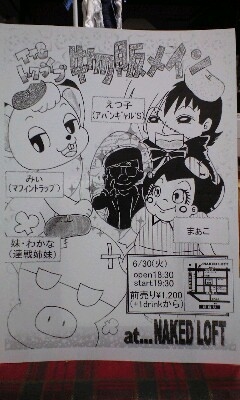 物販メイン
えつ子
(アバンギャル'S)
みい
(マフィントラップ)
まぁこ
妹・わかな
(連戦姉妹)
6/30(火)
open18:30
start19:30
前売り¥1,200
(+1drinkから)
NAKED LOFT
at...NAKED LOFT